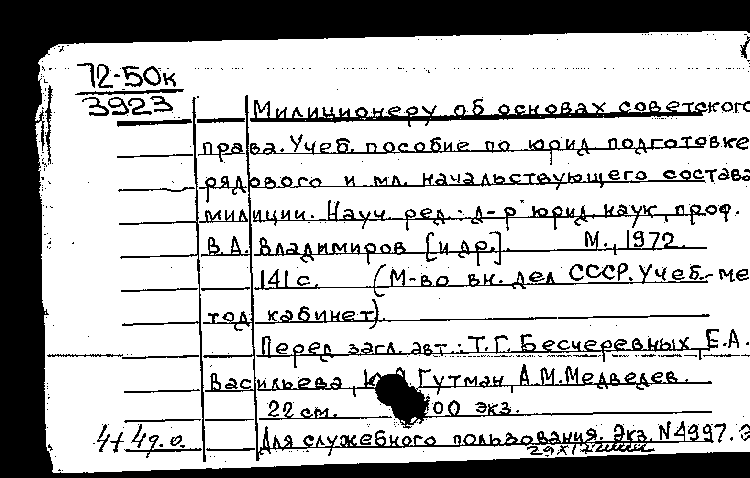 72-50к
3923
Милиционеру об основах советского
права. Учеб. пособие по юрид. подготовке
рядового и мл. начальствующего состава
милиции. Науч. ред.: д-р юрид. наук, проф.
В.А. Владимиров [и др.]. М., 1972.
141 с. (М-во вн. дел СССР. Учеб.-ме
тод кабинет).
Перед загл. авт.: Т.Г. Бесчеревных, Е.А.
Васильева, Гутман, А.М. Медведев.
22 см. 00 экз.
Для служебного пользования. Экз. N4997. Э